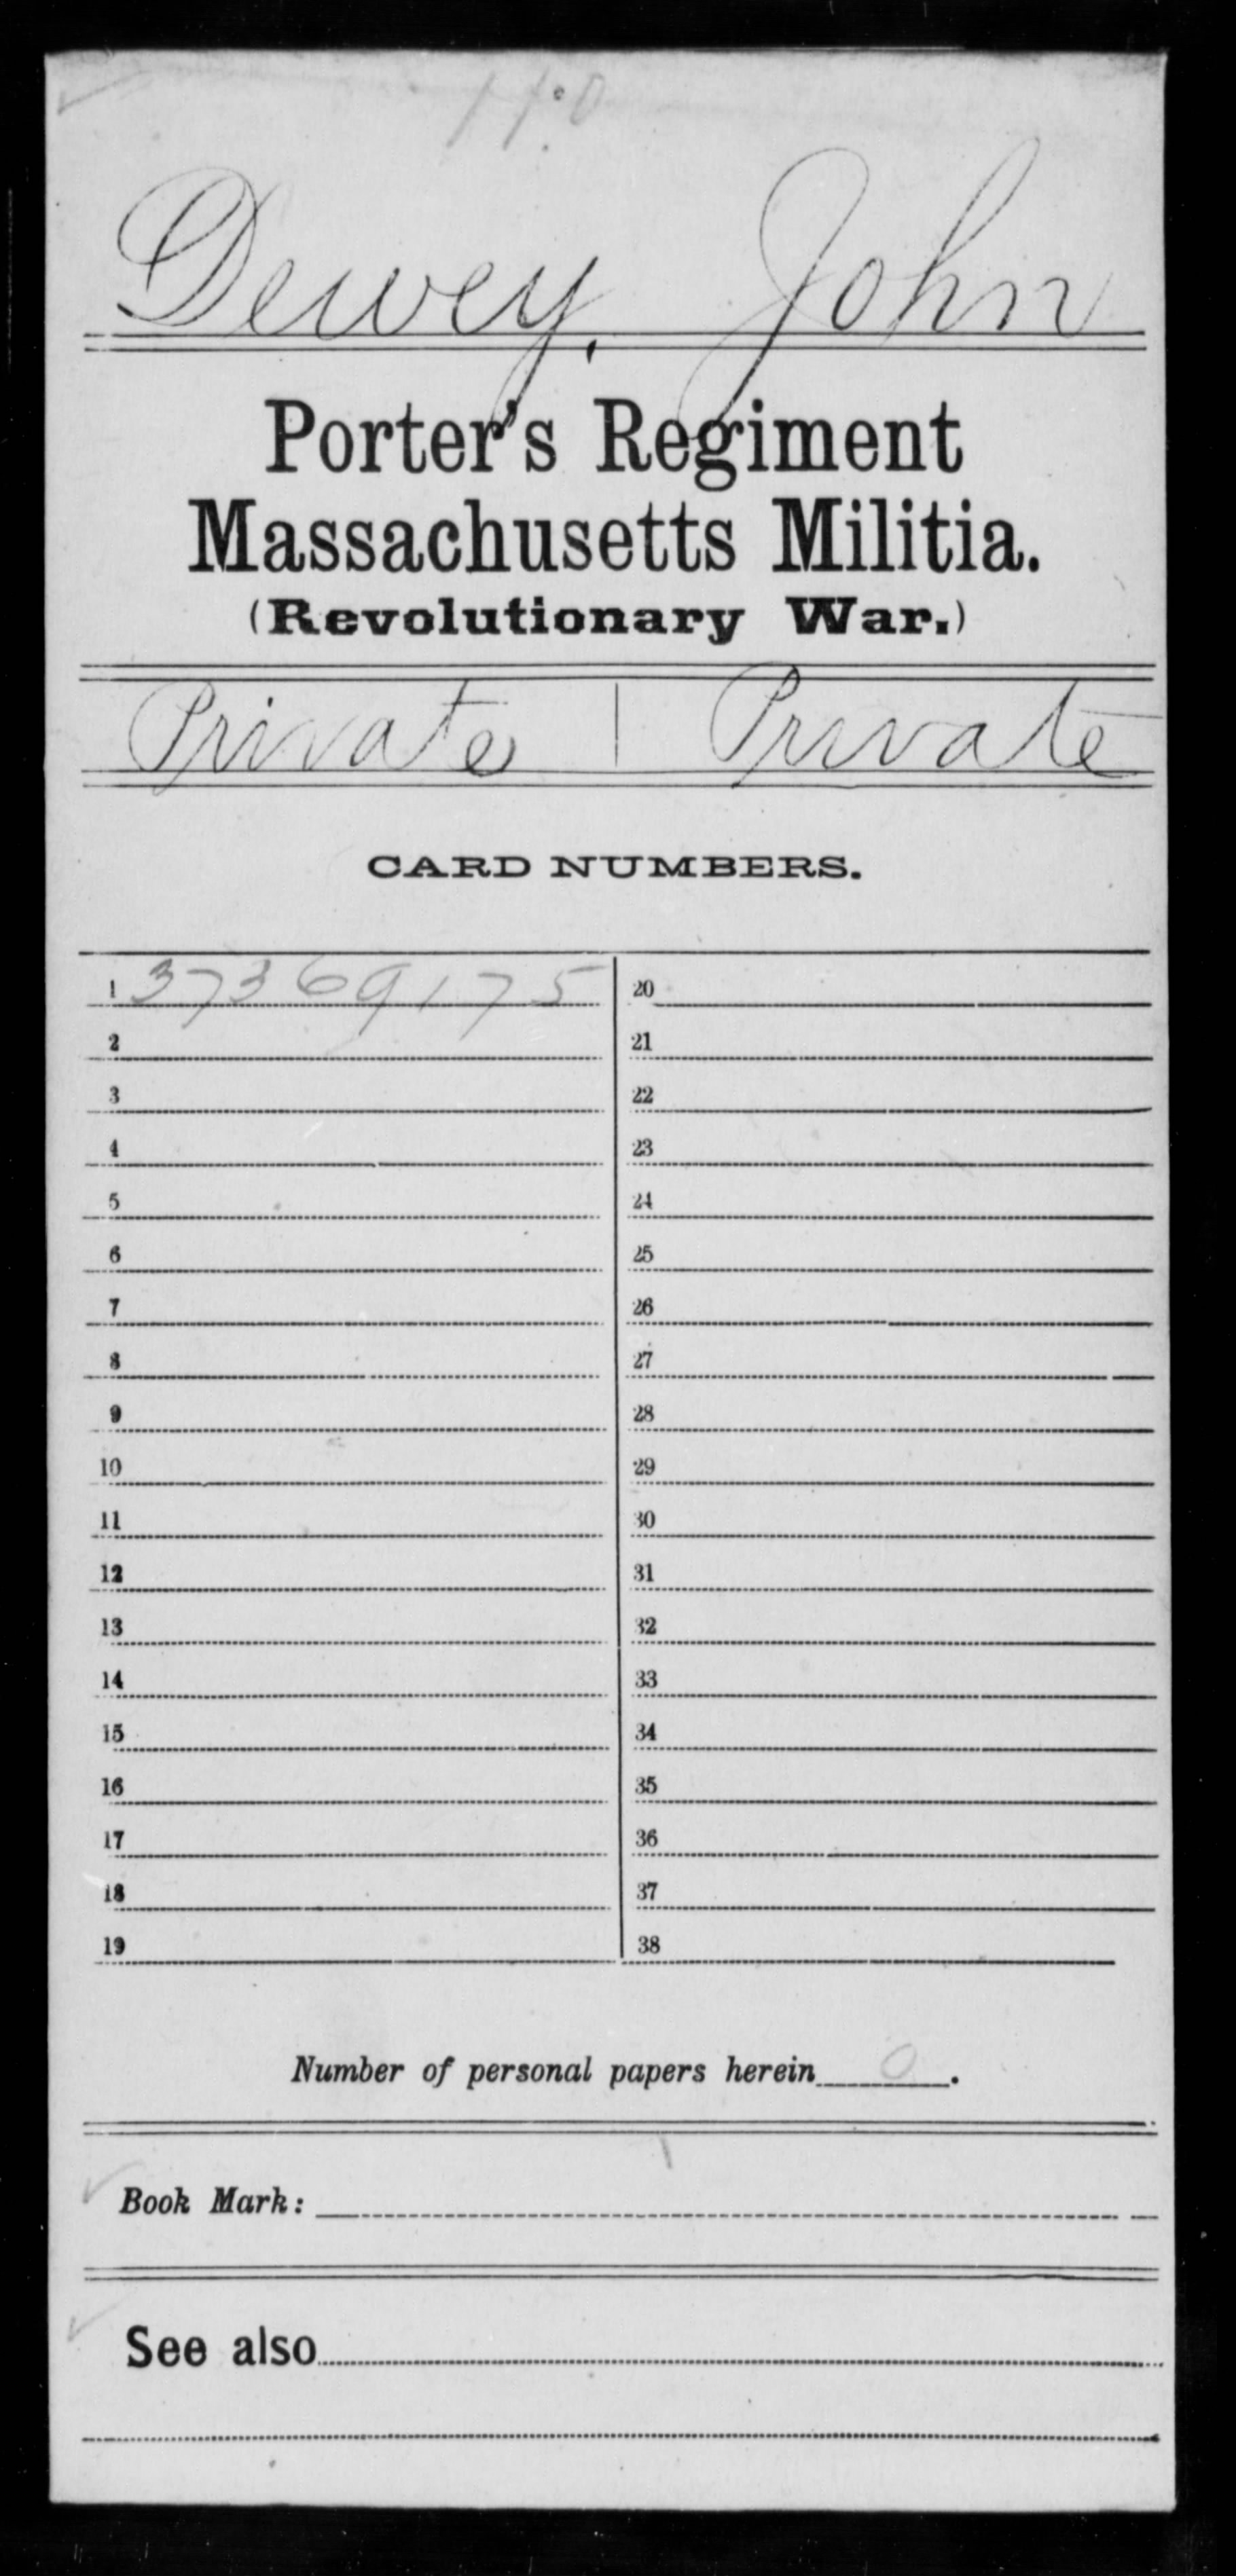 Dewey, John
Porter's Regiment
Massachusetts Militia.
(Revolutionary War.)
Private | Private
CARD NUMBERS.
1 37369175
2
3
4
5
6
7
8
9
10
11
12
13
14
15
16
17
18
19
20
21
22
23
24
25
26
27
28
29
30
31
32
33
34
35
36
37
38
Number of personal papers herein 0.
Book Mark:
See also